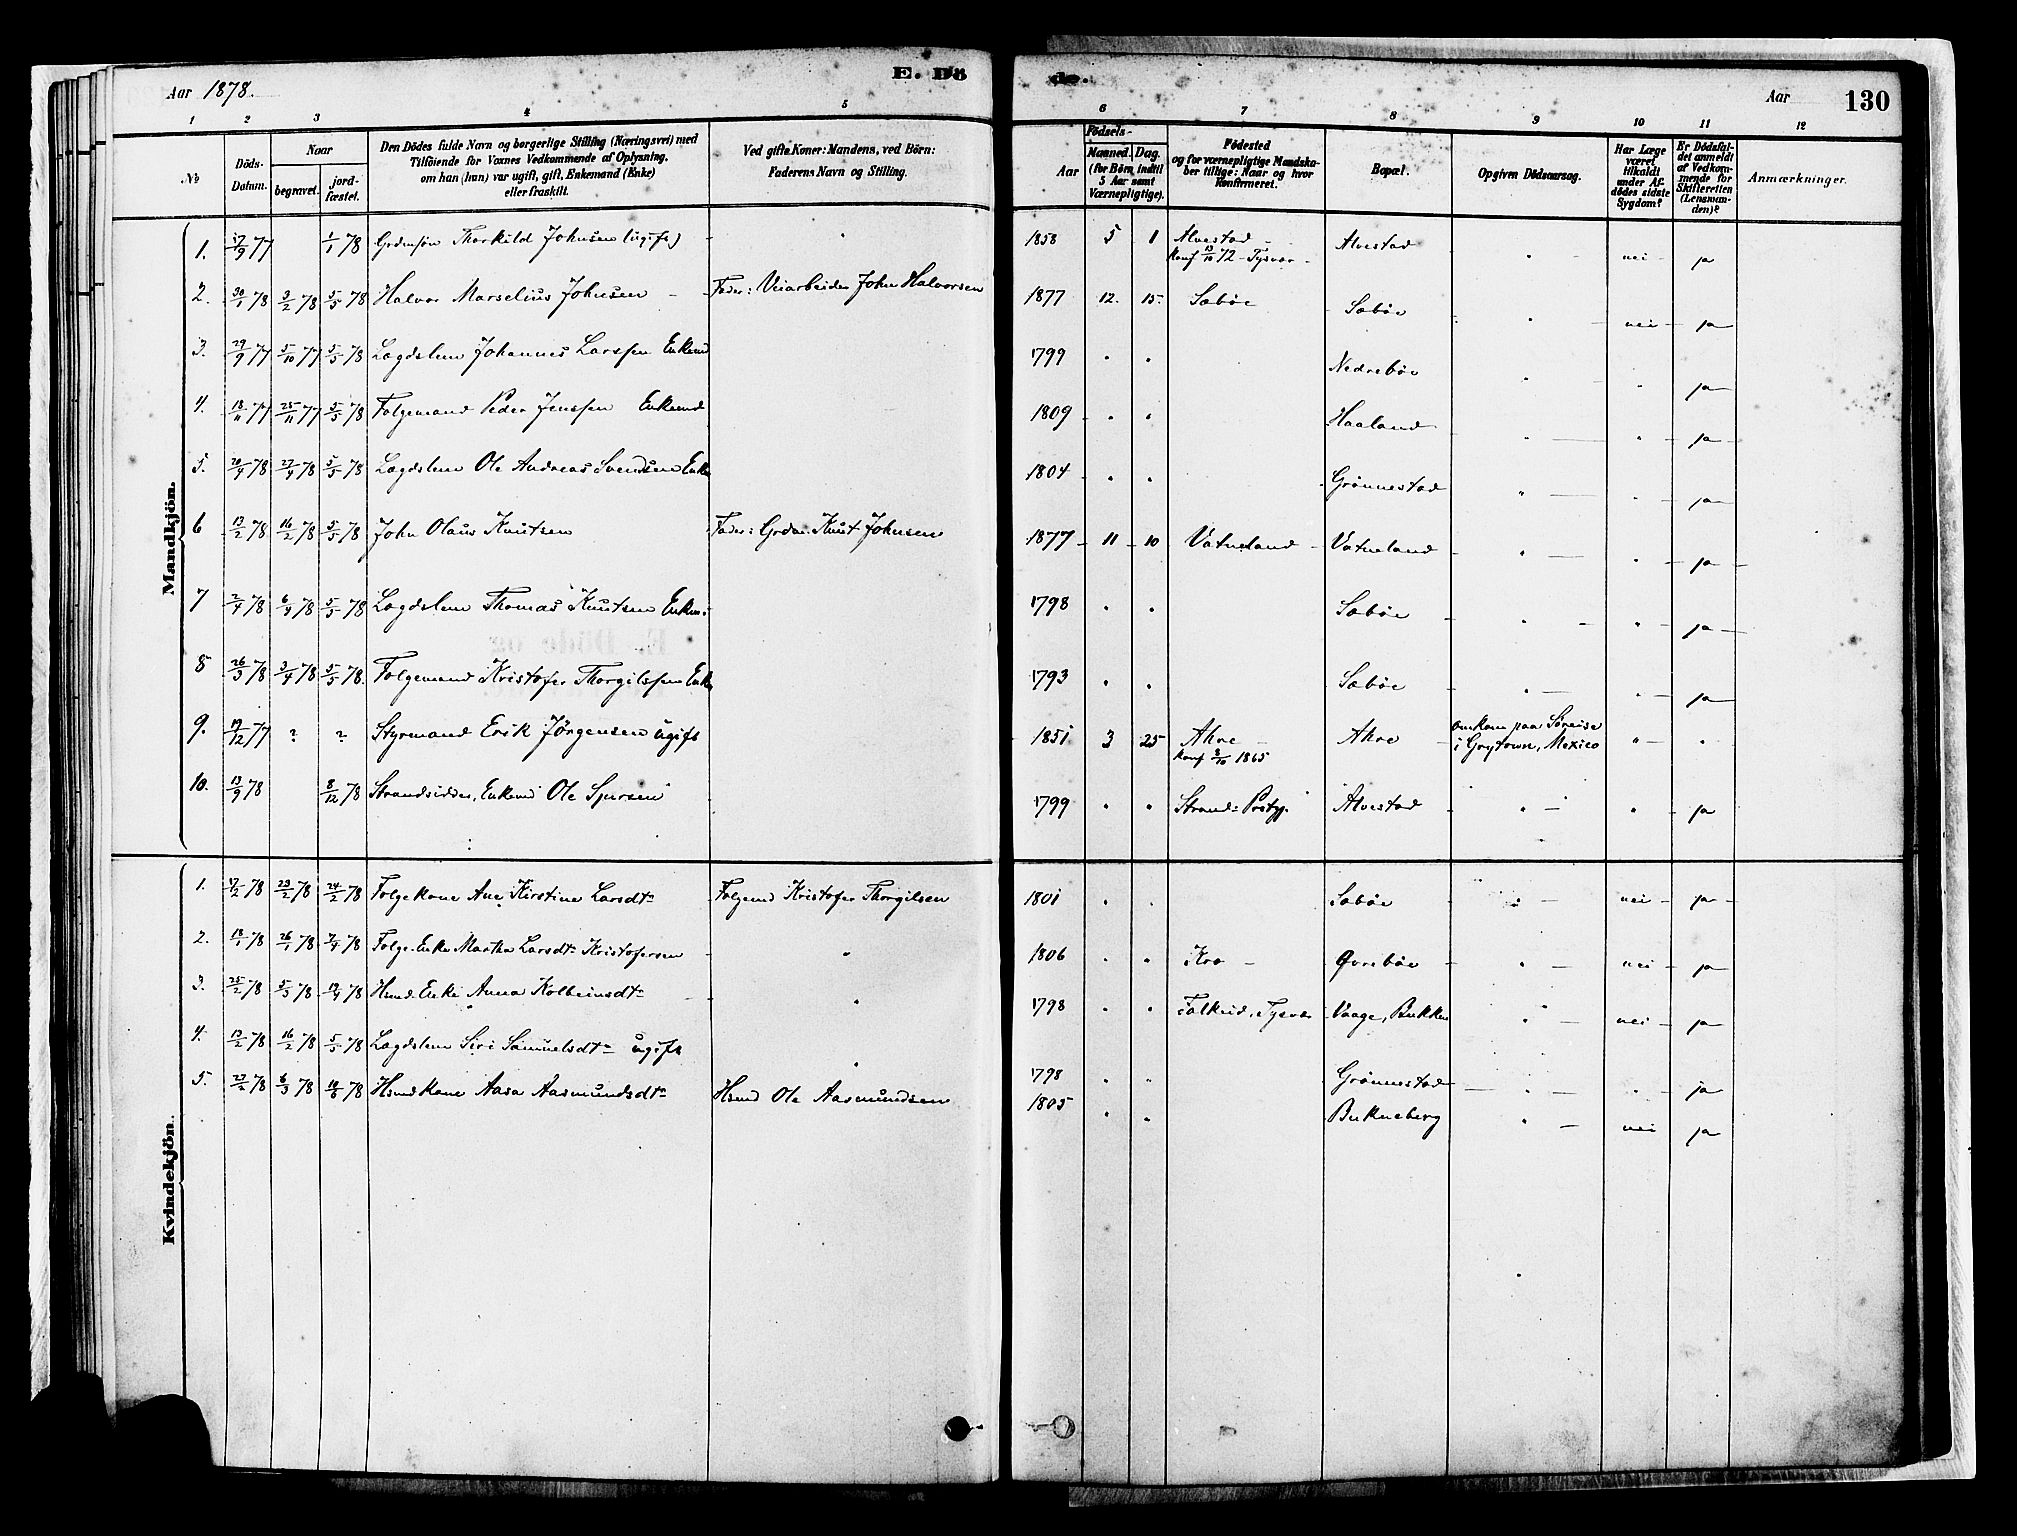 E. Dö
de.
Aar 1878.
Aar
130
1 2 3 4 5 6 7 8 9 10 11 12
No
Döds-Datum.
Naar
begravet.
jordfæstet.
Den Dödes fulde Navn og borgerlige Stilling (Næringsvei) med
Tilföiende for Voxnes Vedkommende af Oplysning,
om han (hun) var ugift, gift, Enkemand (Enke)
eller fraskilt.
Ved gifte Koner: Mandens, ved Börn:
Faderens Navn og Stilling.
Födsels-
Aar
Maaned. Dag.
(for Börn, indtil
5 Aar samt
Værnepligtige).
Födested
og for værnepligtige Mandska-
ber tillige: Naar og hvor
Konfirmeret.
Bopæl.
Opgiven Dödsaarsag.
Har Læge
været
tilkaldt
under Af-
dödes sidste
Sygdom?
Er Dödsfal-
det anmeldt
af Vedkom-
mende for
Skifteretten
(Lensman-
den)?
Anmærkninger.
Mandkjön.
1. 17/9 77 1/1 78 Thorkild Johnsen (ugift) 1858 5 1 Alvestad Alvestad nei ja
Konf 13/10 72 - Tysvær
2. 30/1 78 3/2 78 5/5 78 Halvor Marselius Johnsen Fader: Veiarbeider John Halvorsen 1877 12. 15. Sæbøe Sæbøe " nei ja
3. 29/9 77 5/10 77 5/5 78 Lægdslem Johannes Larssen Enkemd 1799 " " Nedrebøe " " ja
4. 18/11 77 25/11 77 5/5 78 Folgemand Peder Jenssen Enkemd 1809 " " Haaland " " ja
5. 20/4 78 27/4 78 5/5 78 Lægdslem Ole Andreas Svendsen Enke 1804 " " Grønnestad " " ja
6 13/2 78 16/2 78 5/5 78 John Olaus Knutsen Fader: Grdm. Knut Johnsen 1877 11 10 Vatneland Vatneland " " ja
7 2/4 78 6/4 78 5/5 78 Lægdslem Thomas Knutsen Enkem 1798 " " Sæbøe " " ja
8 26/3 78 3/4 78 5/5 78. Folgemand Kristofer Thorgilssen Enke 1793 " " Sæbøe " " ja
9. 19/12 77 ? ? Styrmand Erik Jørgensen ugift 1851 3 25 Ahre Ahre omkom paa Søreise
Konf 8/10 1865 i Grytown, Mexico " "
10. 13/9 78 8/12 78 Strandsidder, Enkemd Ole Sjursen 1799 " " Strand: Prstgj. Alvestad " " ja
Kvindekjön.
1. 17/2 78 23/2 78 24/2 78 Folgekone Ane Kirstine Larsdtr Folgemd Kristofer Thorgilsen 1801 " " Sæbøe " nei ja
2. 18/1 78 26/1 78 7/4 78 Folge-Enke Martha Larsdtr Kristofersen " 1806 " " Kro Øvrebøe " nei ja
3. 25/2 78 5/3 78 19/4 78 Hsmd.Enke Anna Kolbeinsdtr " 1798 " " Falkeid, Tysvær Vaage, Bukken " nei ja
4. 13/2 78 16/2 78 5/5 78 Lægdslem Siri Samuelsdtr ugift " 1798 " " Grønnestad " " ja
5. 27/2 78 6/3 78 78 Hsmdkone Aasa Aasmundsdtr Hsmd Ole Aasmundsen 1805 " " Bukneberg " nei ja